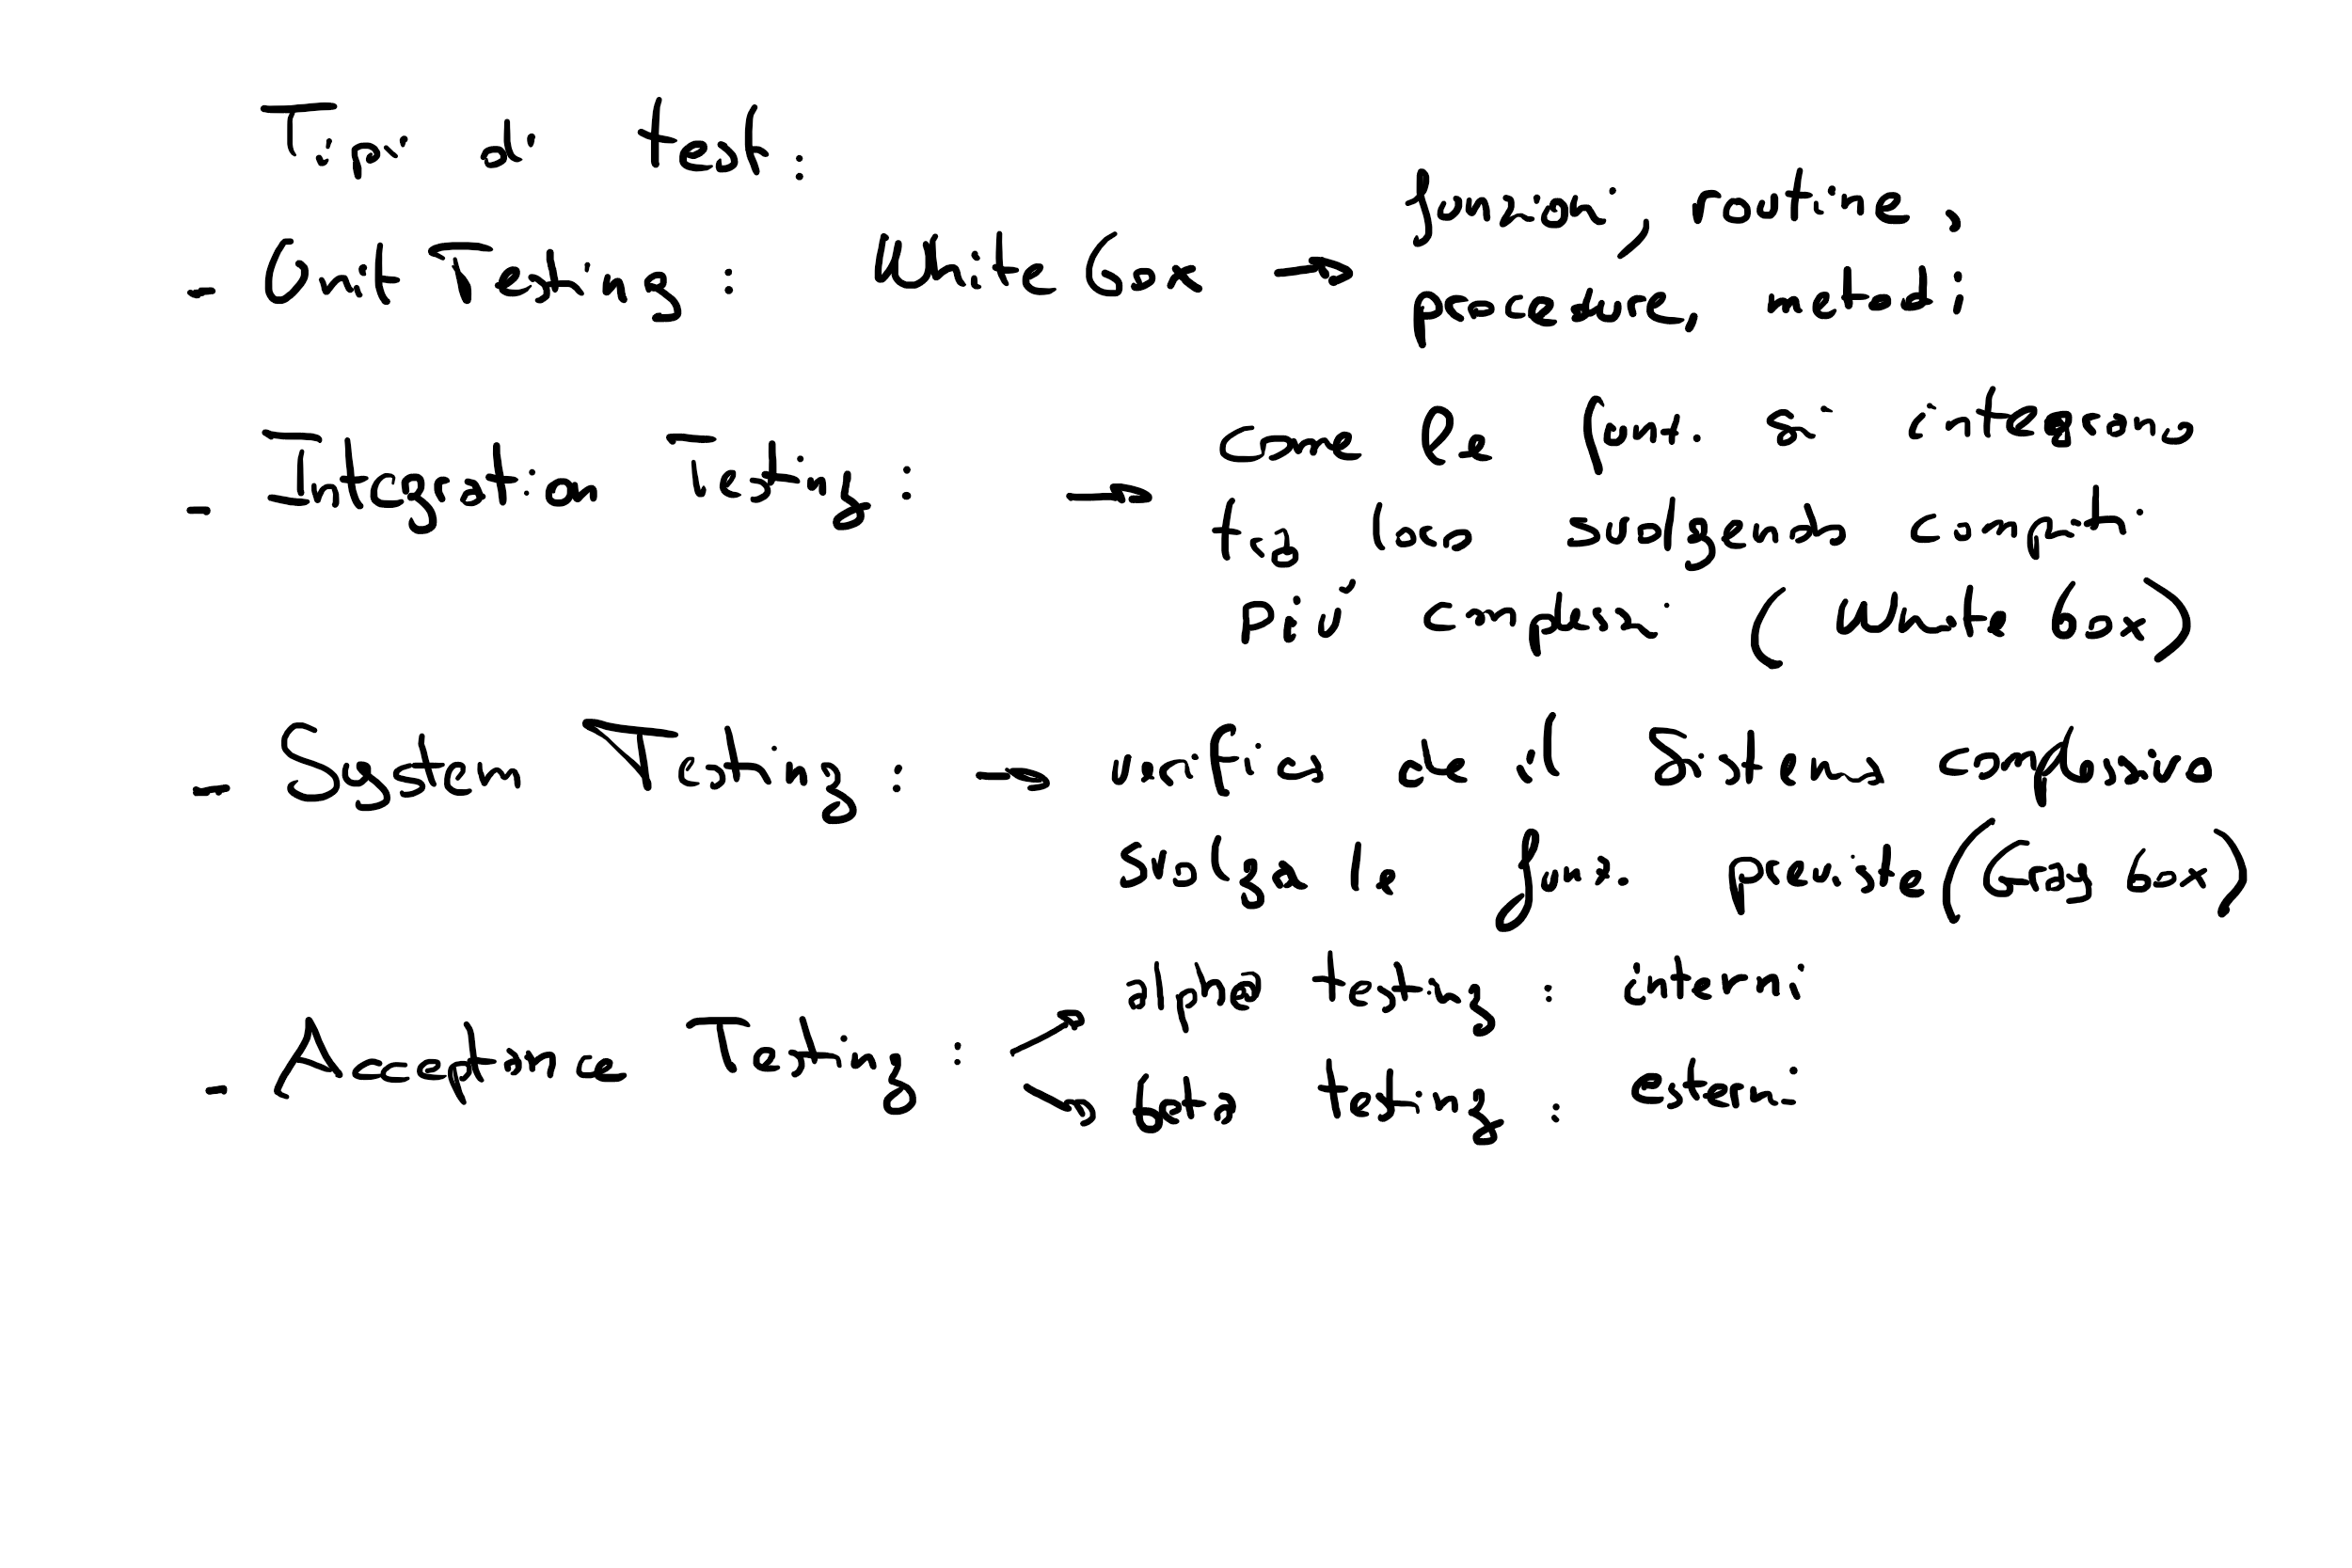 Tipi di test:
- Unit Testing: White Box → funzioni, routine,
procedure, metodi
- Integration Testing: → come le funz. si integrano
tra loro svolgento compiti
più complessi (White box)
- System Testing: → verifica che il Sistema complessivo
svolga le funz. previste (Gray box)
- Acceptance Testing: alpha testing: interni
beta testing: esterni